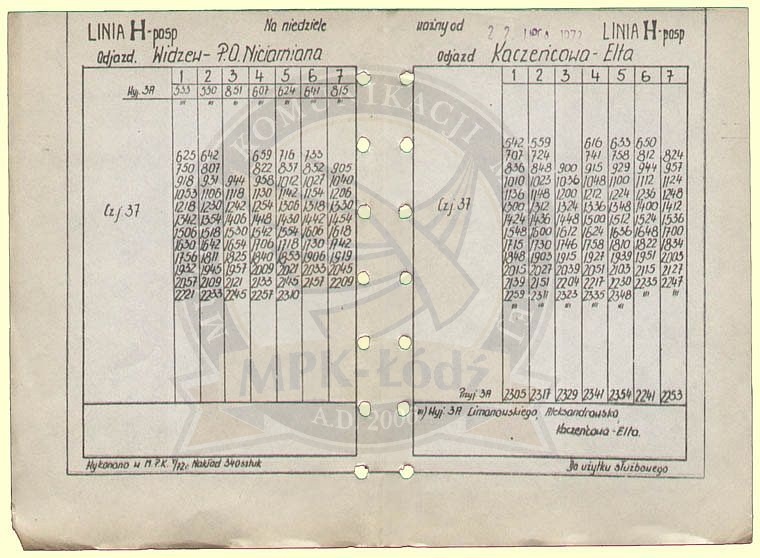 LINIA H-posp Na niedziele
Odjazd. Widzew- P.O. Niciarniana
1 2 3 4 5 6 7
Wyj. 3A 533 550 851 607 624 641 815
625 642 659 716 733
750 807 822 837 852 905
918 931 944 958 1012 1027 1040
1053 1106 1118 1130 1142 1154 1206
Czj 37 1218 1230 1242 1254 1306 1318 1330
1342 1354 1406 1418 1430 1442 1454
1506 1518 1530 1542 1554 1606 1618
1630 1642 1654 1706 1718 1730 1742
1756 1811 1825 1840 1853 1906 1919
1932 1945 1957 2009 2021 2033 2045
2057 2109 2121 2133 2145 2157 2209
2221 2233 2245 2257 2310
Wykonano w M.P.K. Nakład 340 sztuk
ważny od 22 LIPCA 1972 LINIA H-posp
Odjazd Kaczeńcowa-Elta
1 2 3 4 5 6 7
542 559 616 633 650
707 724 741 758 812 824
836 848 900 915 929 944 957
1010 1023 1036 1048 1100 1112 1124
1136 1148 1200 1212 1224 1236 1248
Czj 37 1300 1312 1324 1336 1348 1400 1412
1424 1436 1448 1500 1512 1524 1536
1548 1600 1612 1624 1636 1648 1700
1715 1730 1746 1758 1810 1822 1834
1848 1903 1915 1927 1939 1951 2003
2015 2027 2039 2051 2103 2115 2127
2139 2151 2204 2217 2230 2235 2247
2259 2311 2323 2335 2348
Przyj 3A 2305 2317 2329 2341 2354 2241 2253
Wyj 3A Limanowskiego, Aleksandrowska
Kaczeńcowa-Elta.
Do użytku służbowego
KOMUNIKACJI
MPK-Łódź
A.D. 2006